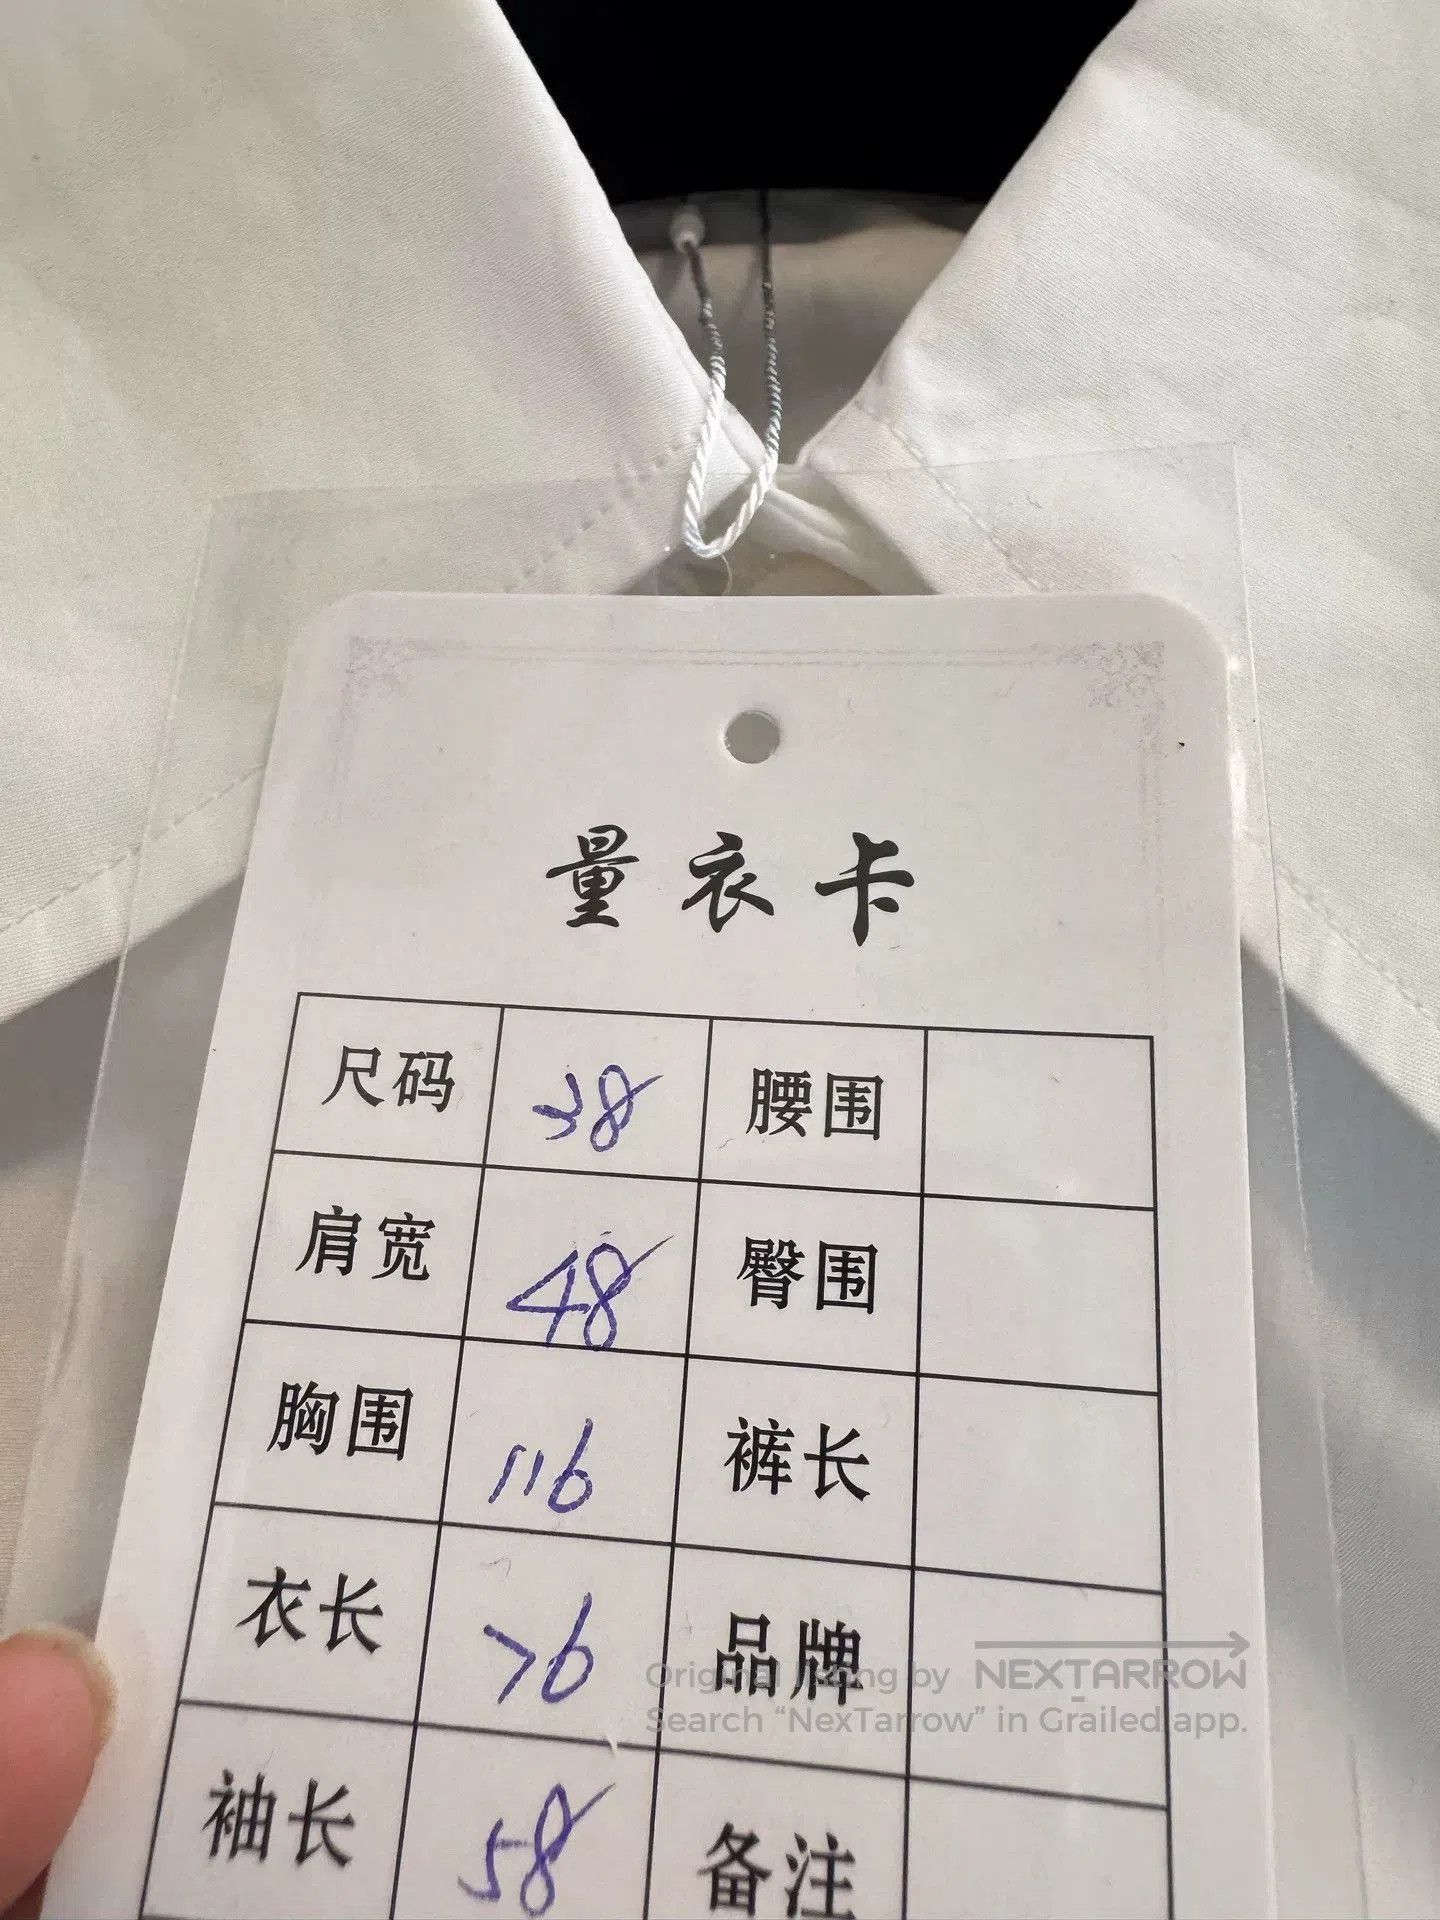 量衣卡
尺码 38 腰围
肩宽 48 臀围
胸围 116 裤长
衣长 76 品牌
Original listing by NEXTARROW
Search “NexTarrow” in Grailed app.
袖长 58 备注